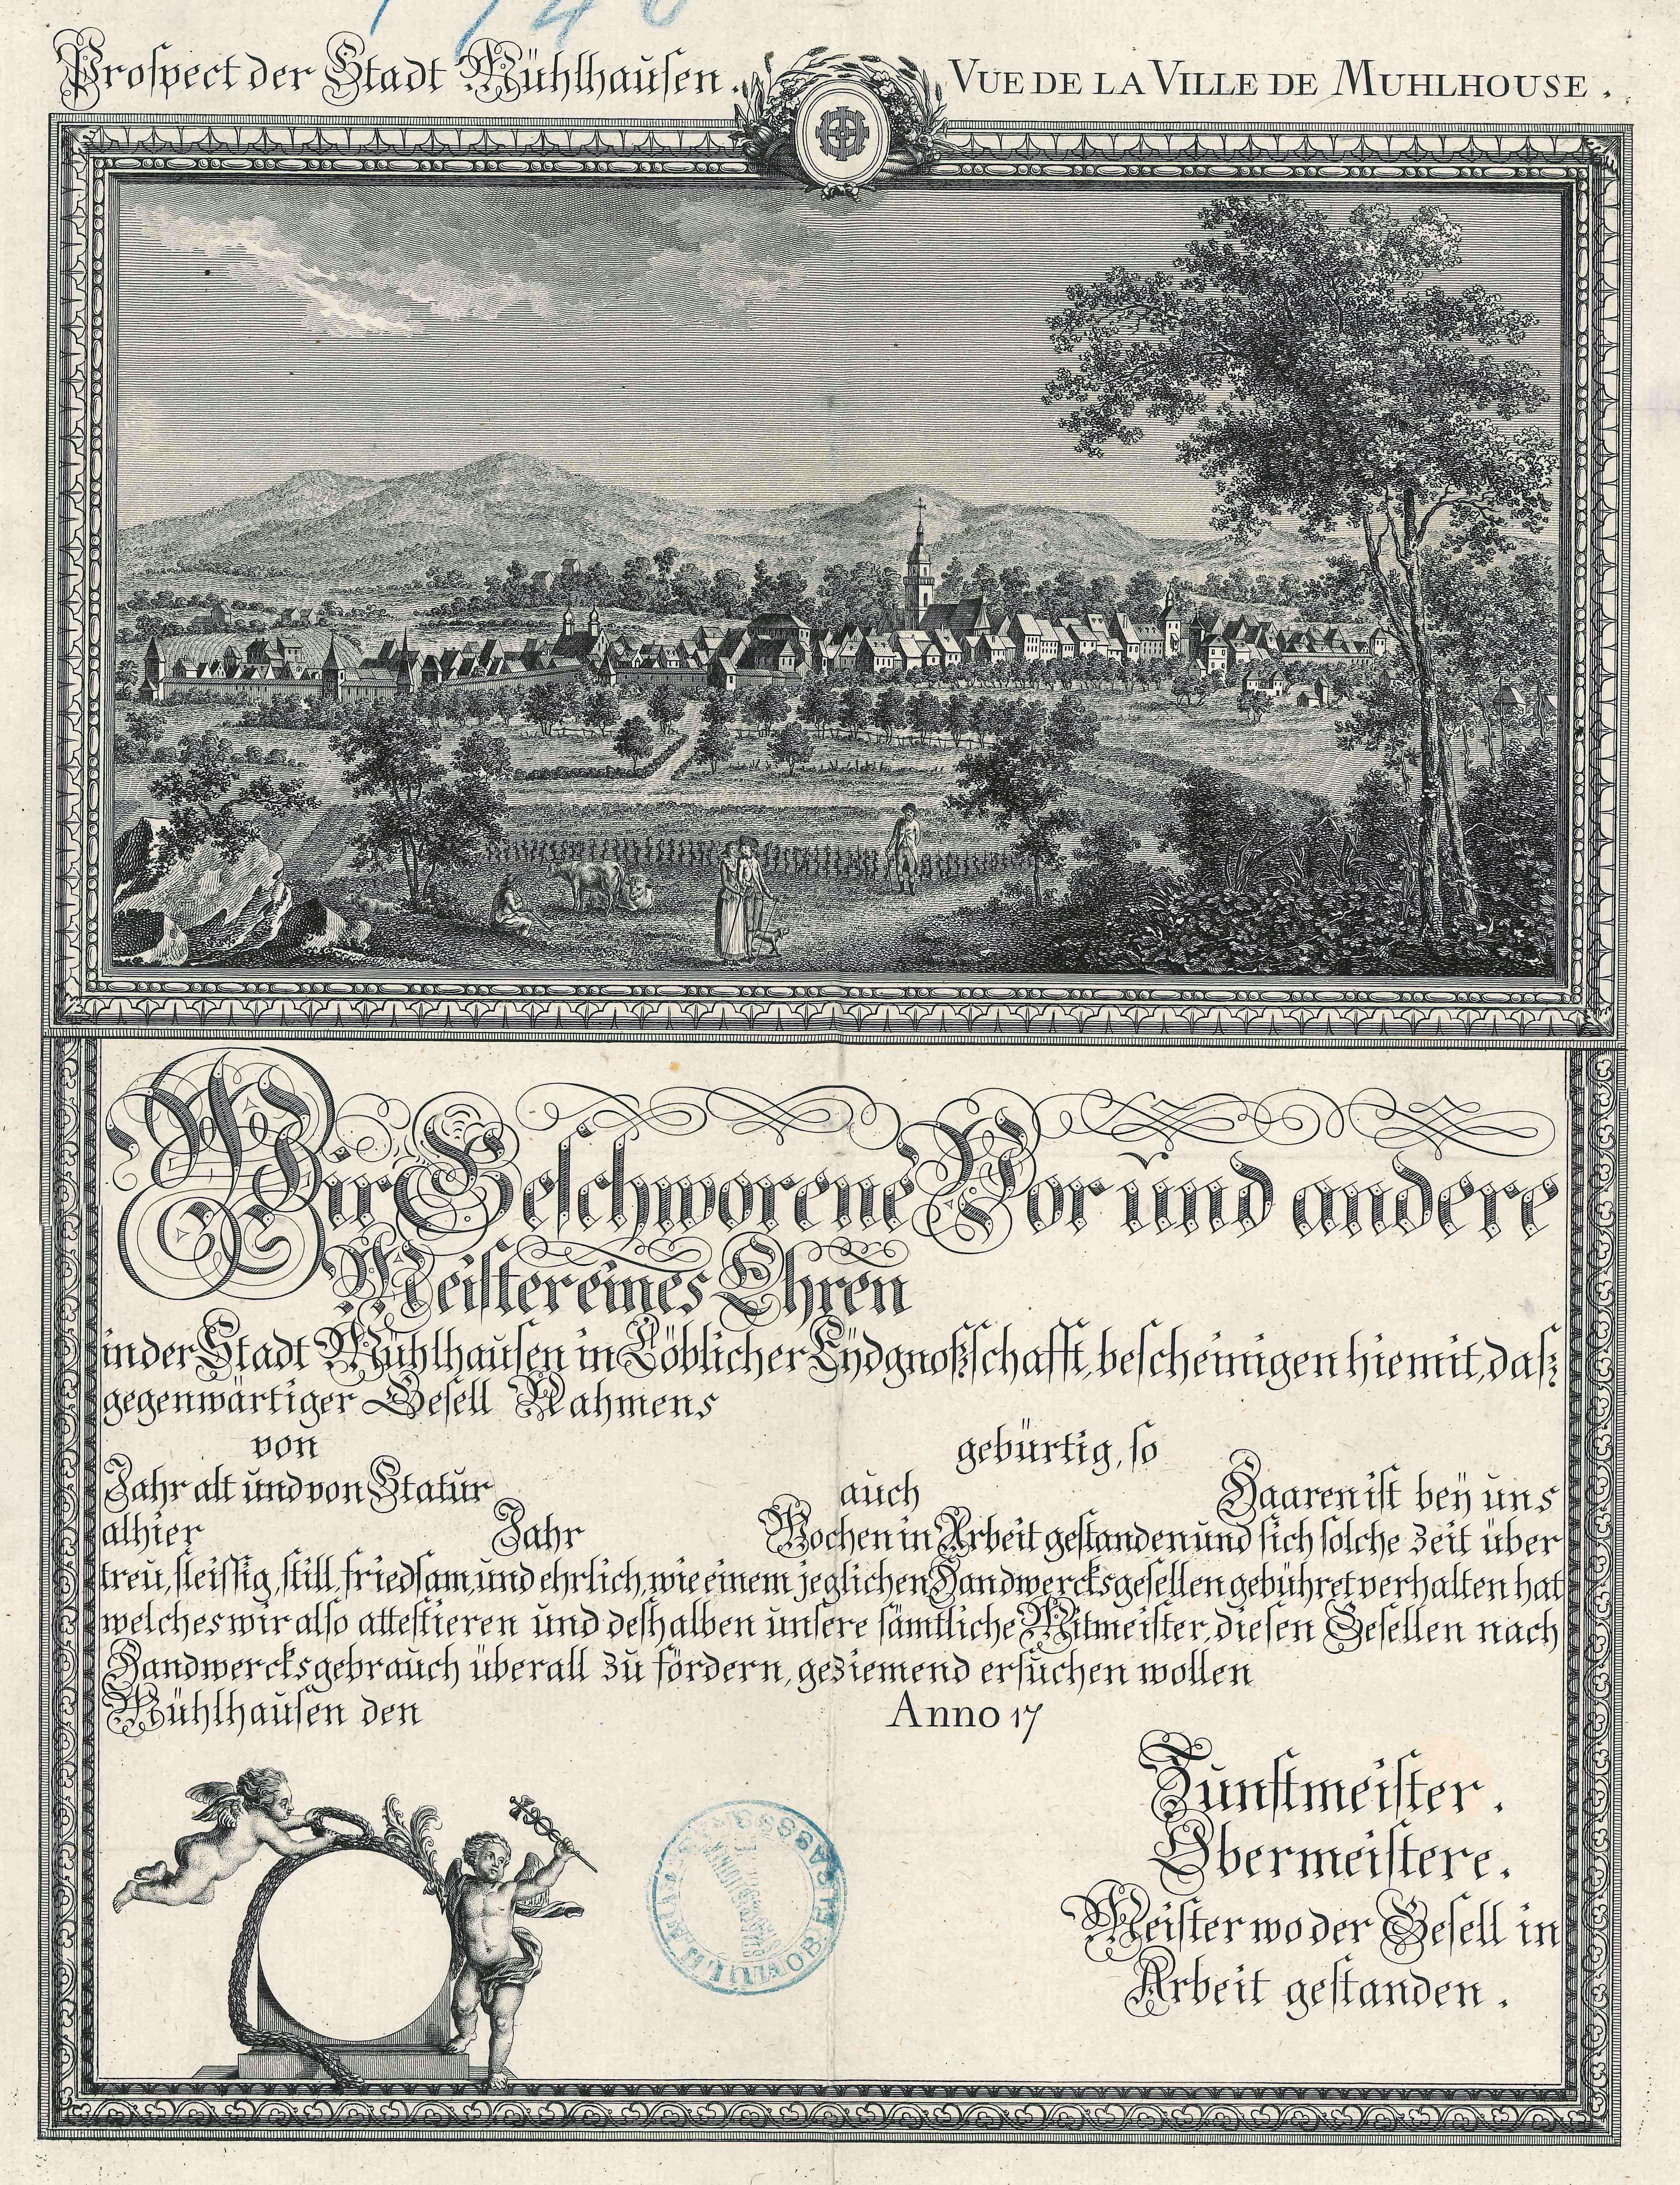 Prospect der Stadt Mühlhausen.
VUE DE LA VILLE DE MUHLHOUSE.
Wir Geschworene Vor und andere
Meister eines Ehren
in der Stadt Mühlhausen in Löblicher Eydgnoßschafft, bescheinigen hiemit, daß
gegenwärtiger Gesell Nahmens
von gebürtig, so
Jahr alt und von Statur auch Haaren ist beÿ uns
alhier Jahr Wochen in Arbeit gestanden und sich solche Zeit über
treu, fleissig, still, friedsam, und ehrlich, wie einem jeglichen Handwercksgesellen gebühret verhalten hat
welches wir also attestieren und deshalben unsere sämtliche Mitmeister, diesen Gesellen nach
Handwercksgebrauch überall zu fördern, geziemend ersuchen wollen
Mühlhausen den Anno 17
Zunftmeister.
Obermeistere.
Meister wo der Gesell in
Arbeit gestanden.